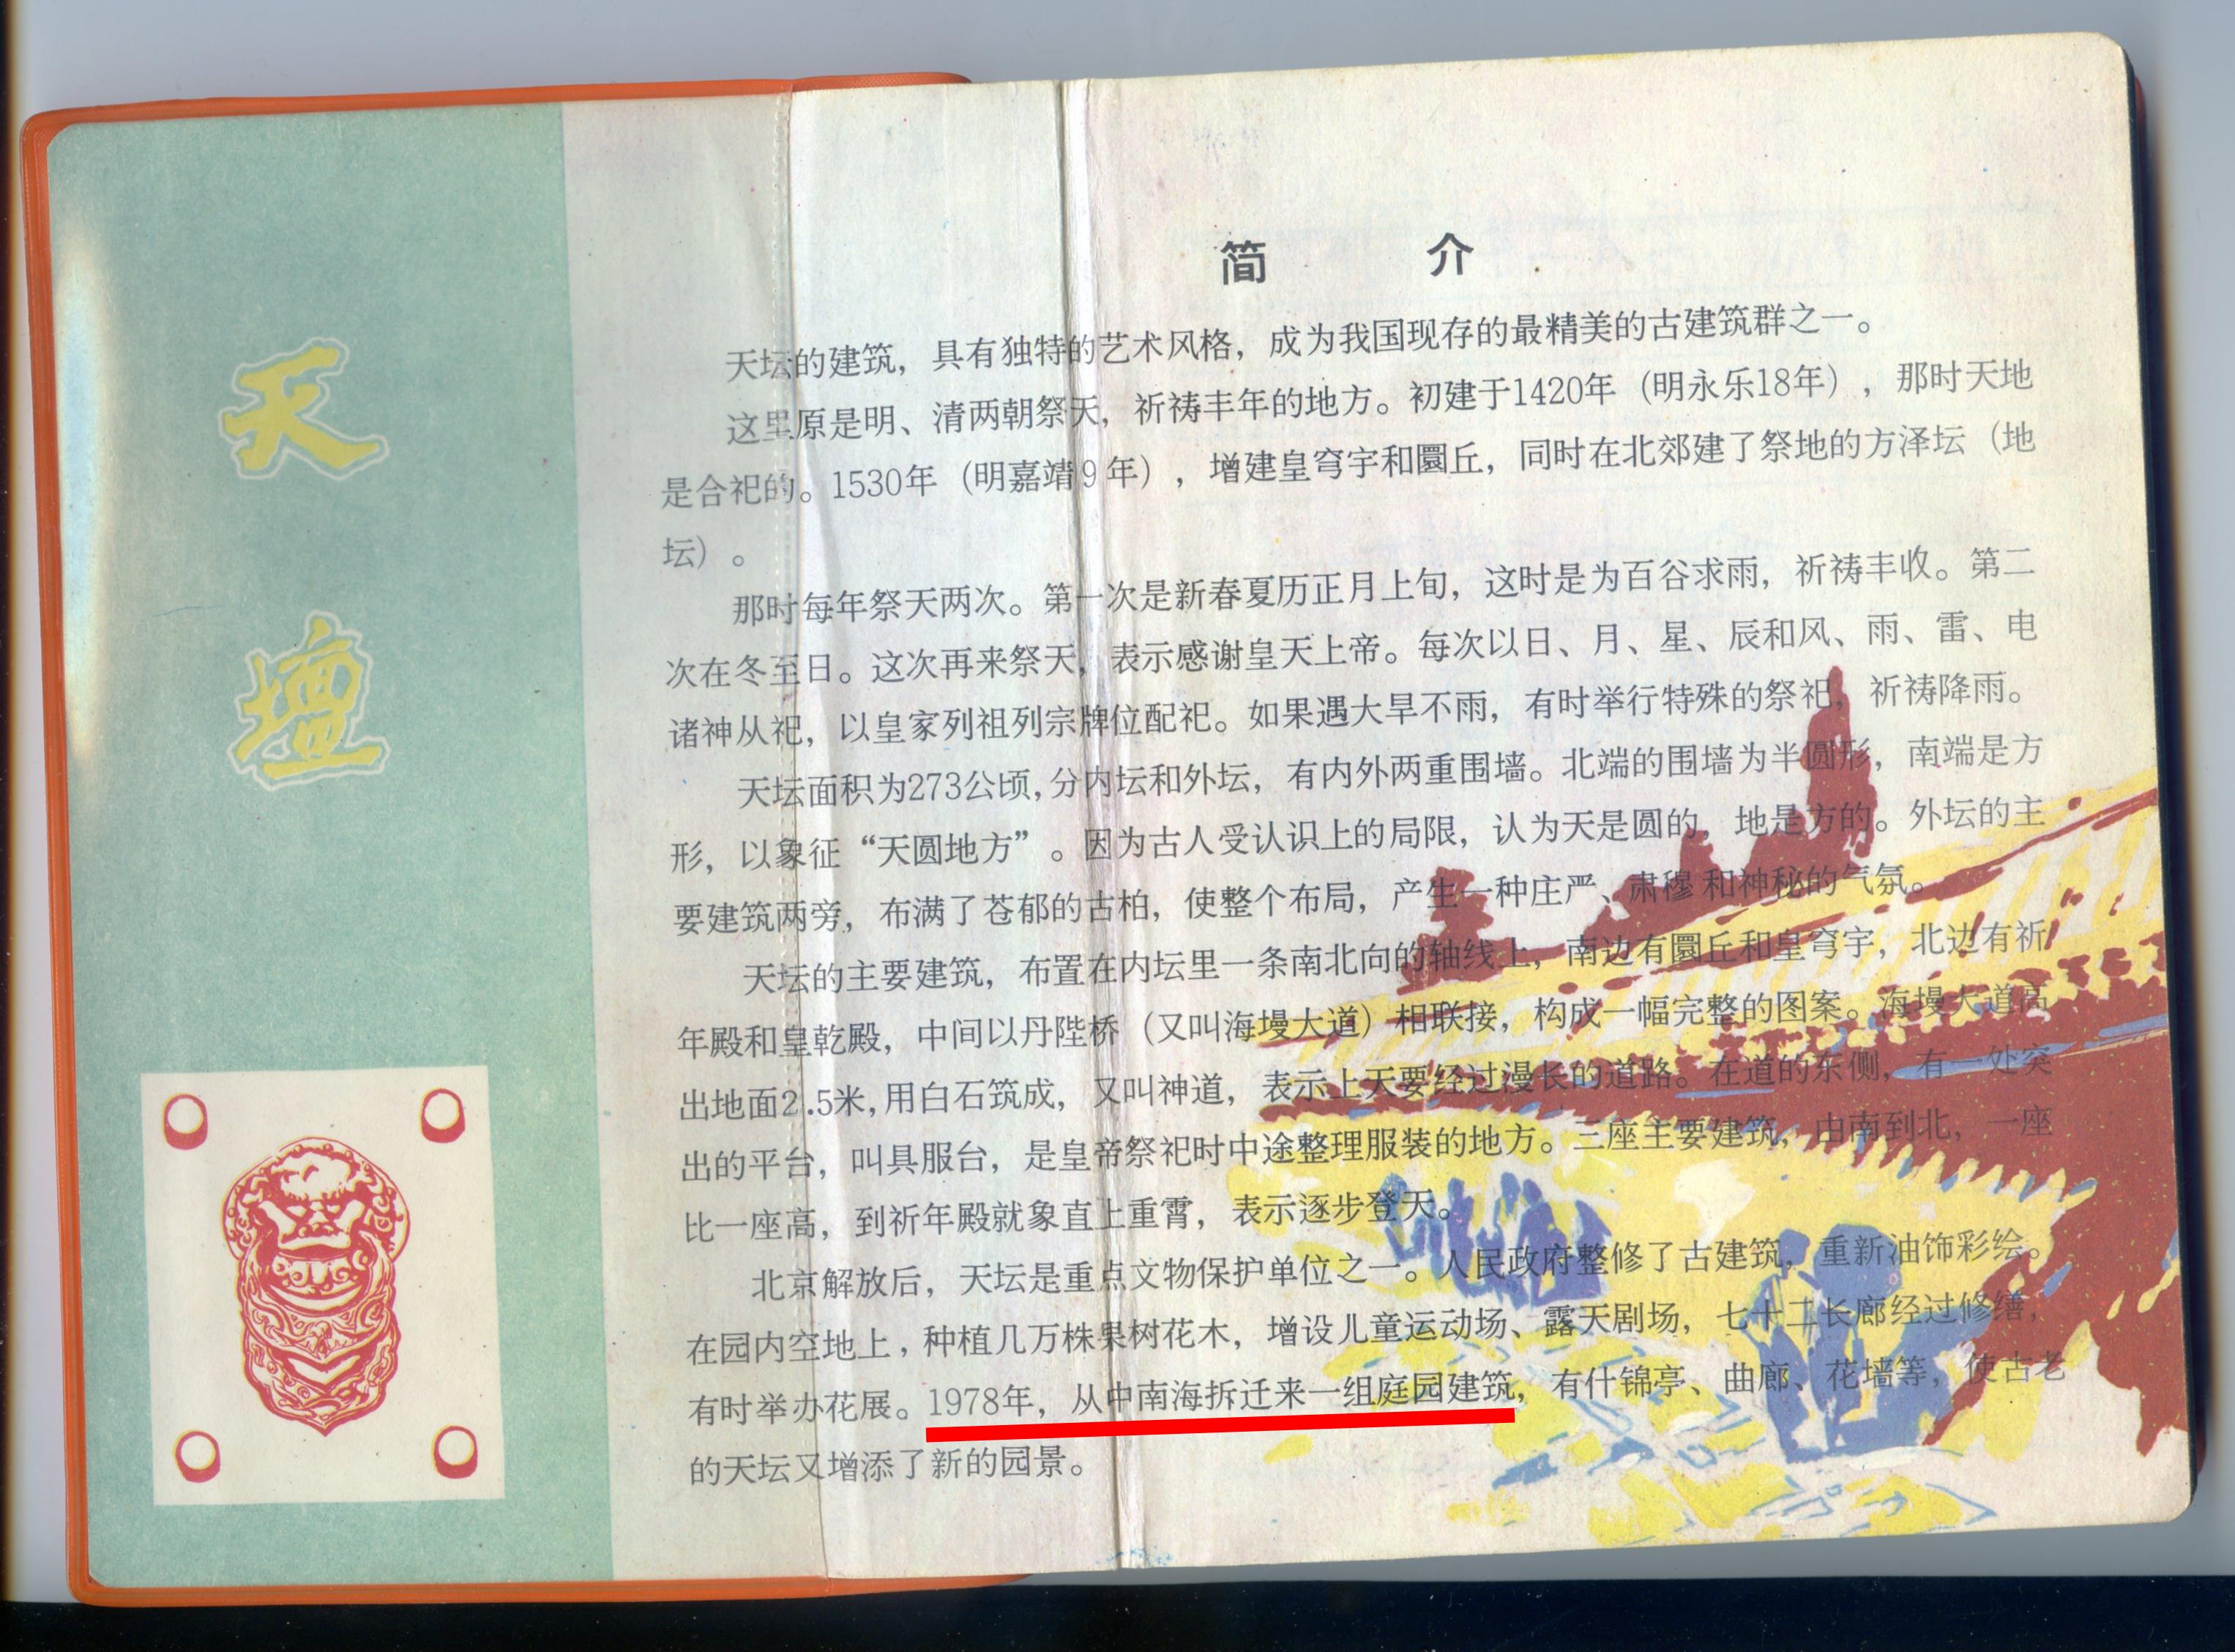 天
壇
简 介
天坛的建筑，具有独特的艺术风格，成为我国现存的最精美的古建筑群之一。
这里原是明、清两朝祭天，祈祷丰年的地方。初建于1420年（明永乐18年），那时天地
是合祀的。1530年（明嘉靖9年），增建皇穹宇和圜丘，同时在北郊建了祭地的方泽坛（地
坛）。
那时每年祭天两次。第一次是新春夏历正月上旬，这时是为百谷求雨，祈祷丰收。第二
次在冬至日。这次再来祭天，表示感谢皇天上帝。每次以日、月、星、辰和风、雨、雷、电
诸神从祀，以皇家列祖列宗牌位配祀。如果遇大旱不雨，有时举行特殊的祭祀，祈祷降雨。
天坛面积为273公顷，分内坛和外坛，有内外两重围墙。北端的围墙为半圆形，南端是方
形，以象征“天圆地方”。因为古人受认识上的局限，认为天是圆的，地是方的。外坛的主
要建筑两旁，布满了苍郁的古柏，使整个布局，产生一种庄严、肃穆和神秘的气氛。
天坛的主要建筑，布置在内坛里一条南北向的轴线上，南边有圜丘和皇穹宇，北边有祈
年殿和皇乾殿，中间以丹陛桥（又叫海墁大道）相联接，构成一幅完整的图案。海墁大道高
出地面2.5米，用白石筑成，又叫神道，表示上天要经过漫长的道路。在道的东侧，有一处突
出的平台，叫具服台，是皇帝祭祀时中途整理服装的地方。三座主要建筑，由南到北，一座
比一座高，到祈年殿就象直上重霄，表示逐步登天。
北京解放后，天坛是重点文物保护单位之一。人民政府整修了古建筑，重新油饰彩绘。
在园内空地上，种植几万株果树花木，增设儿童运动场、露天剧场，七十二长廊经过修缮，
有时举办花展。1978年，从中南海拆迁来一组庭园建筑，有什锦亭、曲廊、花墙等，使古老
的天坛又增添了新的园景。